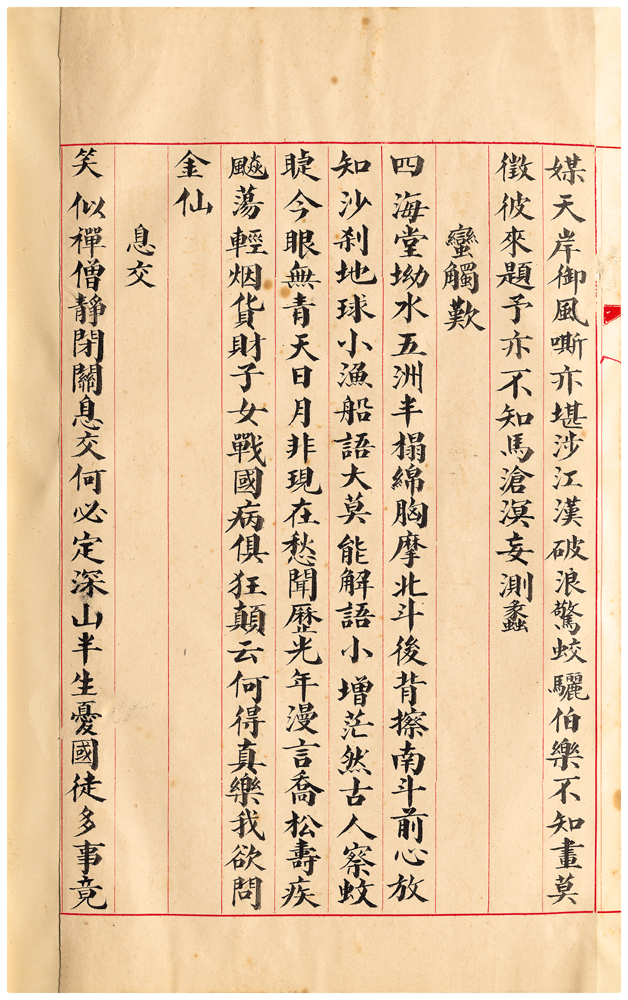 媒天岸御風嘶亦堪涉江漢破浪驚蛟驪伯樂不知畫莫
徵彼來題予亦不知馬滄溟妄測蠡
蠻觸歎
四海堂坳水五洲半榻綿胸摩北斗後背擦南斗前心放
知沙刹地球小漁船語大莫能解語小增茫然古人察蚊
睫今眼無青天日月非現在愁聞歷光年漫言喬松壽疾
飈蕩輕烟貨財子女戰國病俱狂顛云何得真樂我欲問
金仙
息交
笑似禪僧靜閉關息交何必定深山半生憂國徒多事竟